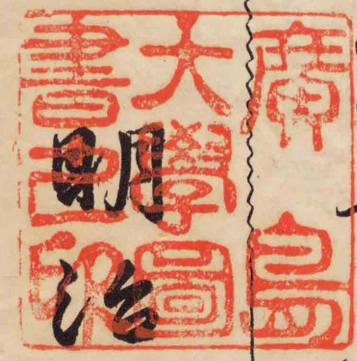 廣島
大學圖
書之印
明治